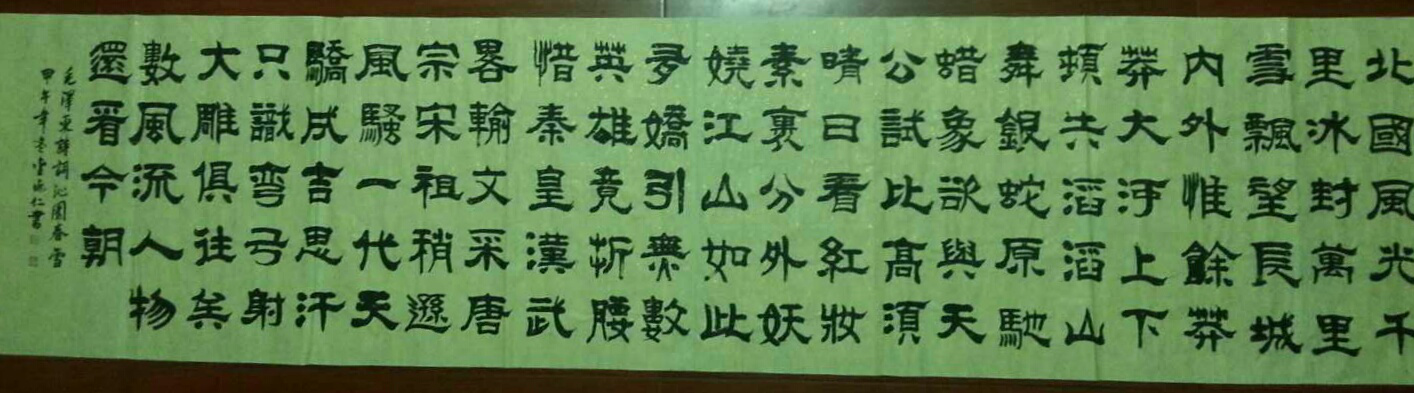 北國風光千
里冰封萬里
雪飄望長城
内外惟餘莽
莽大河上下
頓失滔滔山
舞銀蛇原馳
蜡象欲與天
公試比高須
晴日看紅妝
素裹分外妖
嬈江山如此
多嬌引無數
英雄竟折腰
惜秦皇漢武
畧輸文采唐
宗宋祖稍遜
風騷一代天
驕成吉思汗
只識彎弓射
大雕俱往矣
數風流人物
還看今朝
毛澤東詩詞沁園春雪
甲午年仁書